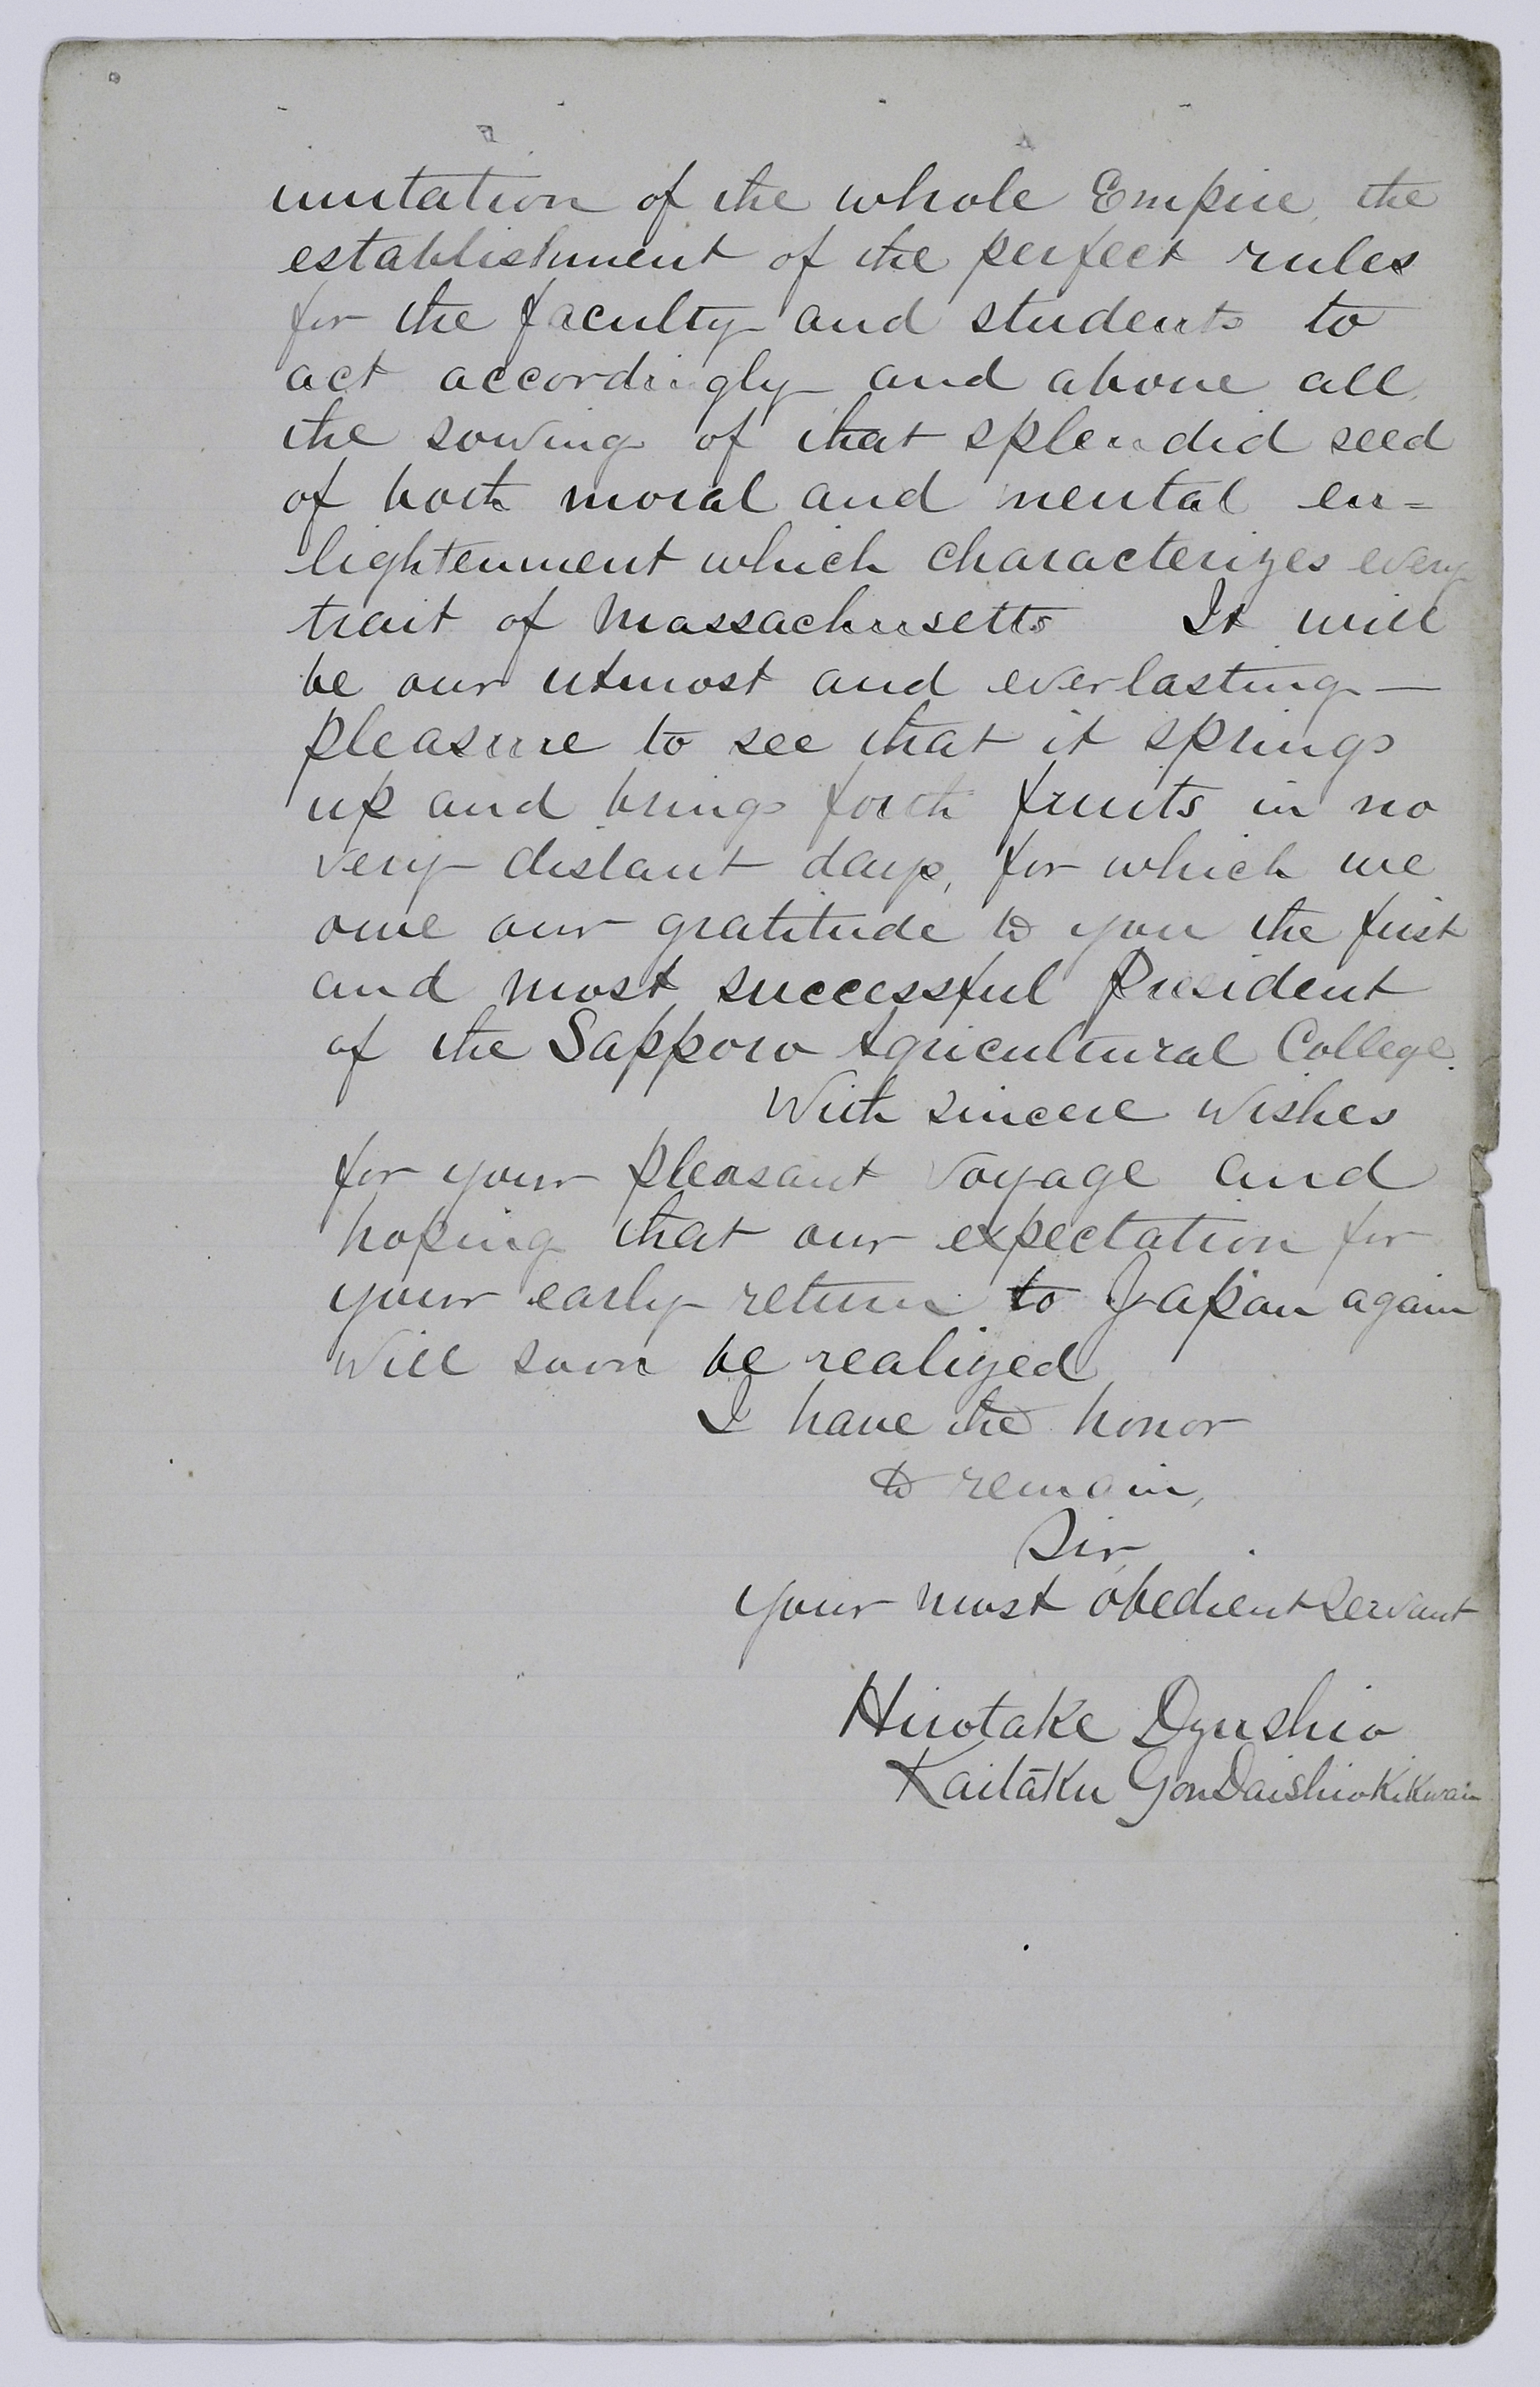 imitation of the whole Empire, the
establishment of the perfect rules
for the faculty and students to
act accordingly and above all,
the sowing of that splendid seed
of both moral and mental en=
lightenment which characterizes every
trait of Massachusetts It will
be our utmost and everlasting —
pleasure to see that it springs
up and brings forth fruits in no
very distant days, for which we
owe our gratitude to you the first
and most successful President
of the Sapporo Agricultural College.
With sincere wishes
for your pleasant voyage and
hoping that our expectation for
your early return to Japan again
will soon be realized
I have the honor
to remain,
Sir,
your most obedient servant
Hirotake Dzushio
Kaitaku GonDaishiokikwan